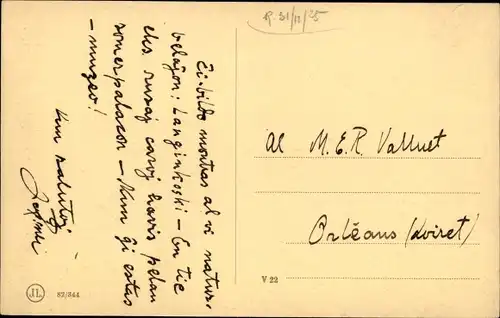 R. 31/12/25
Ĉi-bildo montras al vi natur-
belaĵon: Langinkoski - En tie
eks rusaj caroj havis
somerpalacon - Nun ĝi estas
- muzeo!
Kun salutoj
al M. E. R. Valluet
Orléans (Loiret)
V 22
JL
82/344